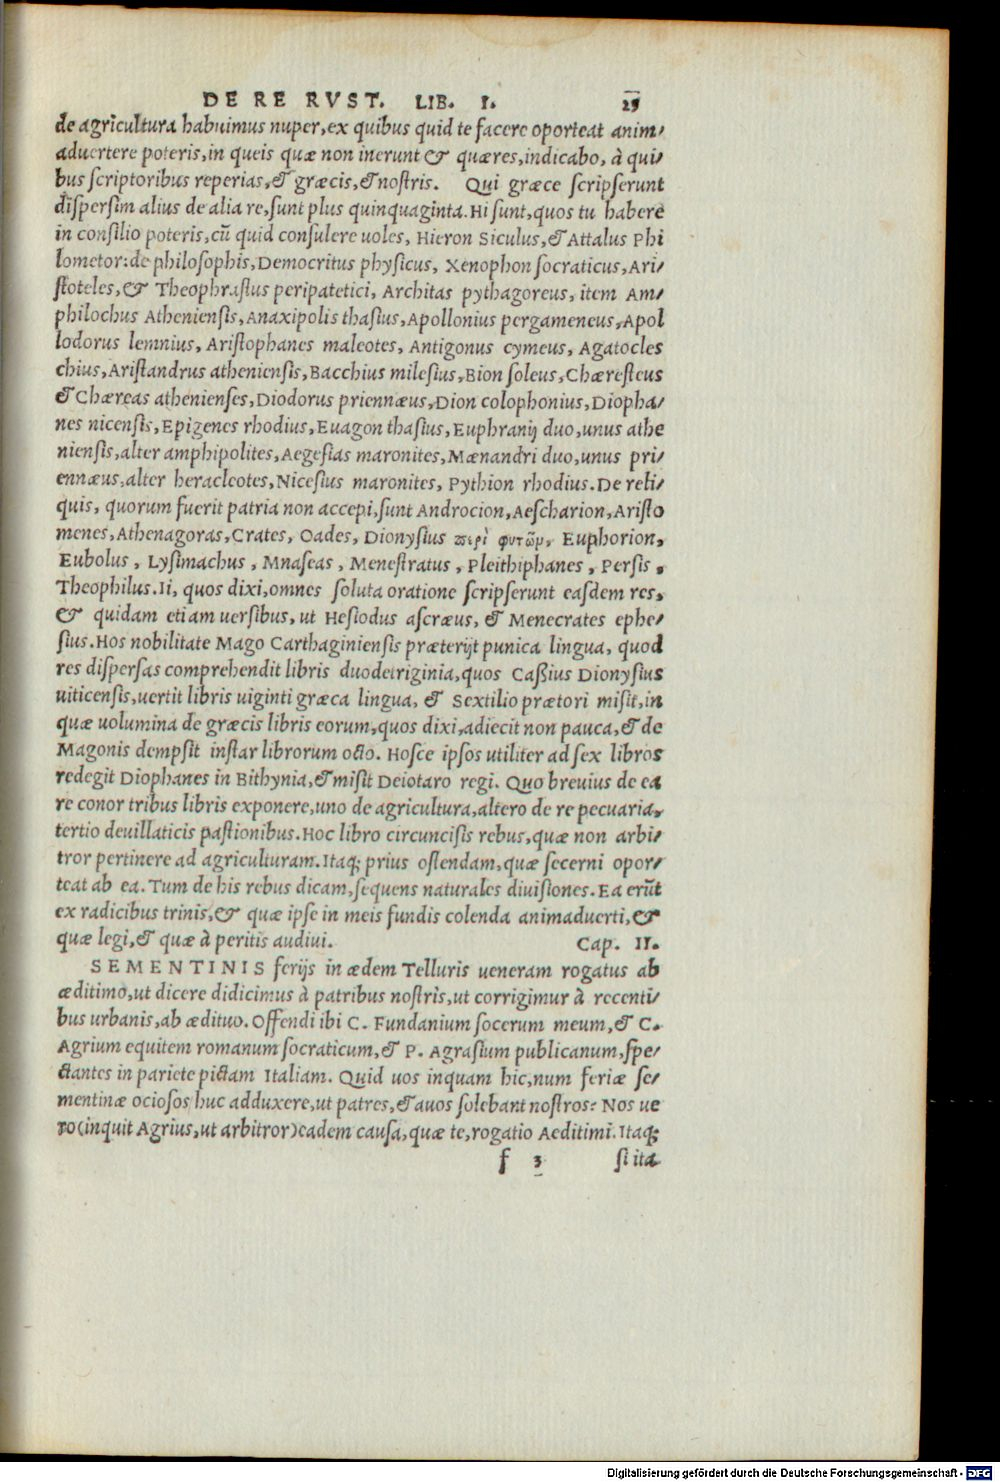 DE RE RVST. LIB. I. 25
de agricultura habuimus nuper, ex quibus quid te facere oporteat anim/
aduertere poteris, in queis quæ non inerunt & quæres, indicabo, à qui/
bus scriptoribus reperias, & græcis, & nostris. Qui græce scripserunt
dispersim alius de alia re, sunt plus quinquaginta. Hi sunt, quos tu habere
in consilio poteris, cū quid consulere uoles, Hieron Siculus, & Attalus Phi
lometor: de philosophis, Democritus physicus, Xenophon socraticus, Ari/
stoteles, & Theophrastus peripatetici, Architas pythagoreus, item Am/
philochus Atheniensis, Anaxipolis thasius, Apollonius pergameneus, Apol
lodorus lemnius, Aristophanes maleotes, Antigonus cymeus, Agatocles
chius, Aristandrus atheniensis, Bacchius milesius, Bion soleus, Chæresteus
& Chæreas athenienses, Diodorus priennæus, Dion colophonius, Diopha/
nes nicensis, Epigenes rhodius, Euagon thasius, Euphranij duo, unus athe
niensis, alter amphipolites, Aegesias maronites, Mænandri duo, unus pri/
ennæus, alter heracleotes, Nicesius maronites, Pythion rhodius. De reli/
quis, quorum fuerit patria non accepi, sunt Androcion, Aescharion, Aristo
menes, Athenagoras, Crates, Oades, Dionysius περὶ φυτῶν, Euphorion,
Eubolus, Lysimachus, Mnaseas, Menestratus, Pleithiphanes, Persis,
Theophilus. Ii, quos dixi, omnes soluta oratione scripserunt easdem res,
& quidam etiam uersibus, ut Hesiodus ascræus, & Menecrates ephe/
sius. Hos nobilitate Mago Carthaginiensis præterijt punica lingua, quod
res dispersas comprehendit libris duodetriginia, quos Caßius Dionysius
uiticensis, uertit libris uiginti græca lingua, & Sextilio prætori misit, in
quæ uolumina de græcis libris eorum, quos dixi, adiecit non pauca, & de
Magonis dempsit instar librorum octo. Hosce ipsos utiliter ad sex libros
redegit Diophanes in Bithynia, & misit Deiotaro regi. Quo breuius de ea
re conor tribus libris exponere, uno de agricultura, altero de re pecuaria,
tertio de uillaticis pastionibus. Hoc libro circuncisis rebus, quæ non arbi/
tror pertinere ad agriculturam. Itaq; prius ostendam, quæ secerni opor/
teat ab ea. Tum de his rebus dicam, sequens naturales diuisiones. Ea erūt
ex radicibus trinis, & quæ ipse in meis fundis colenda animaduerti, &
quæ legi, & quæ à peritis audiui. Cap. II.
SEMENTINIS ferijs in ædem Telluris ueneram rogatus ab
æditimo, ut dicere didicimus à patribus nostris, ut corrigimur à recenti/
bus urbanis, ab ædituo. Offendi ibi C. Fundanium socerum meum, & C.
Agrium equitem romanum socraticum, & P. Agrasium publicanum, spe/
ctantes in pariete pictam Italiam. Quid uos inquam hic, num feriæ se/
mentinæ ociosos huc adduxere, ut patres, & auos solebant nostros? Nos ue
ro (inquit Agrius, ut arbitror) eadem causa, quæ te, rogatio Aeditimi. Itaq;
f 3 si ita
Digitalisierung gefördert durch die Deutsche Forschungsgemeinschaft - DFG